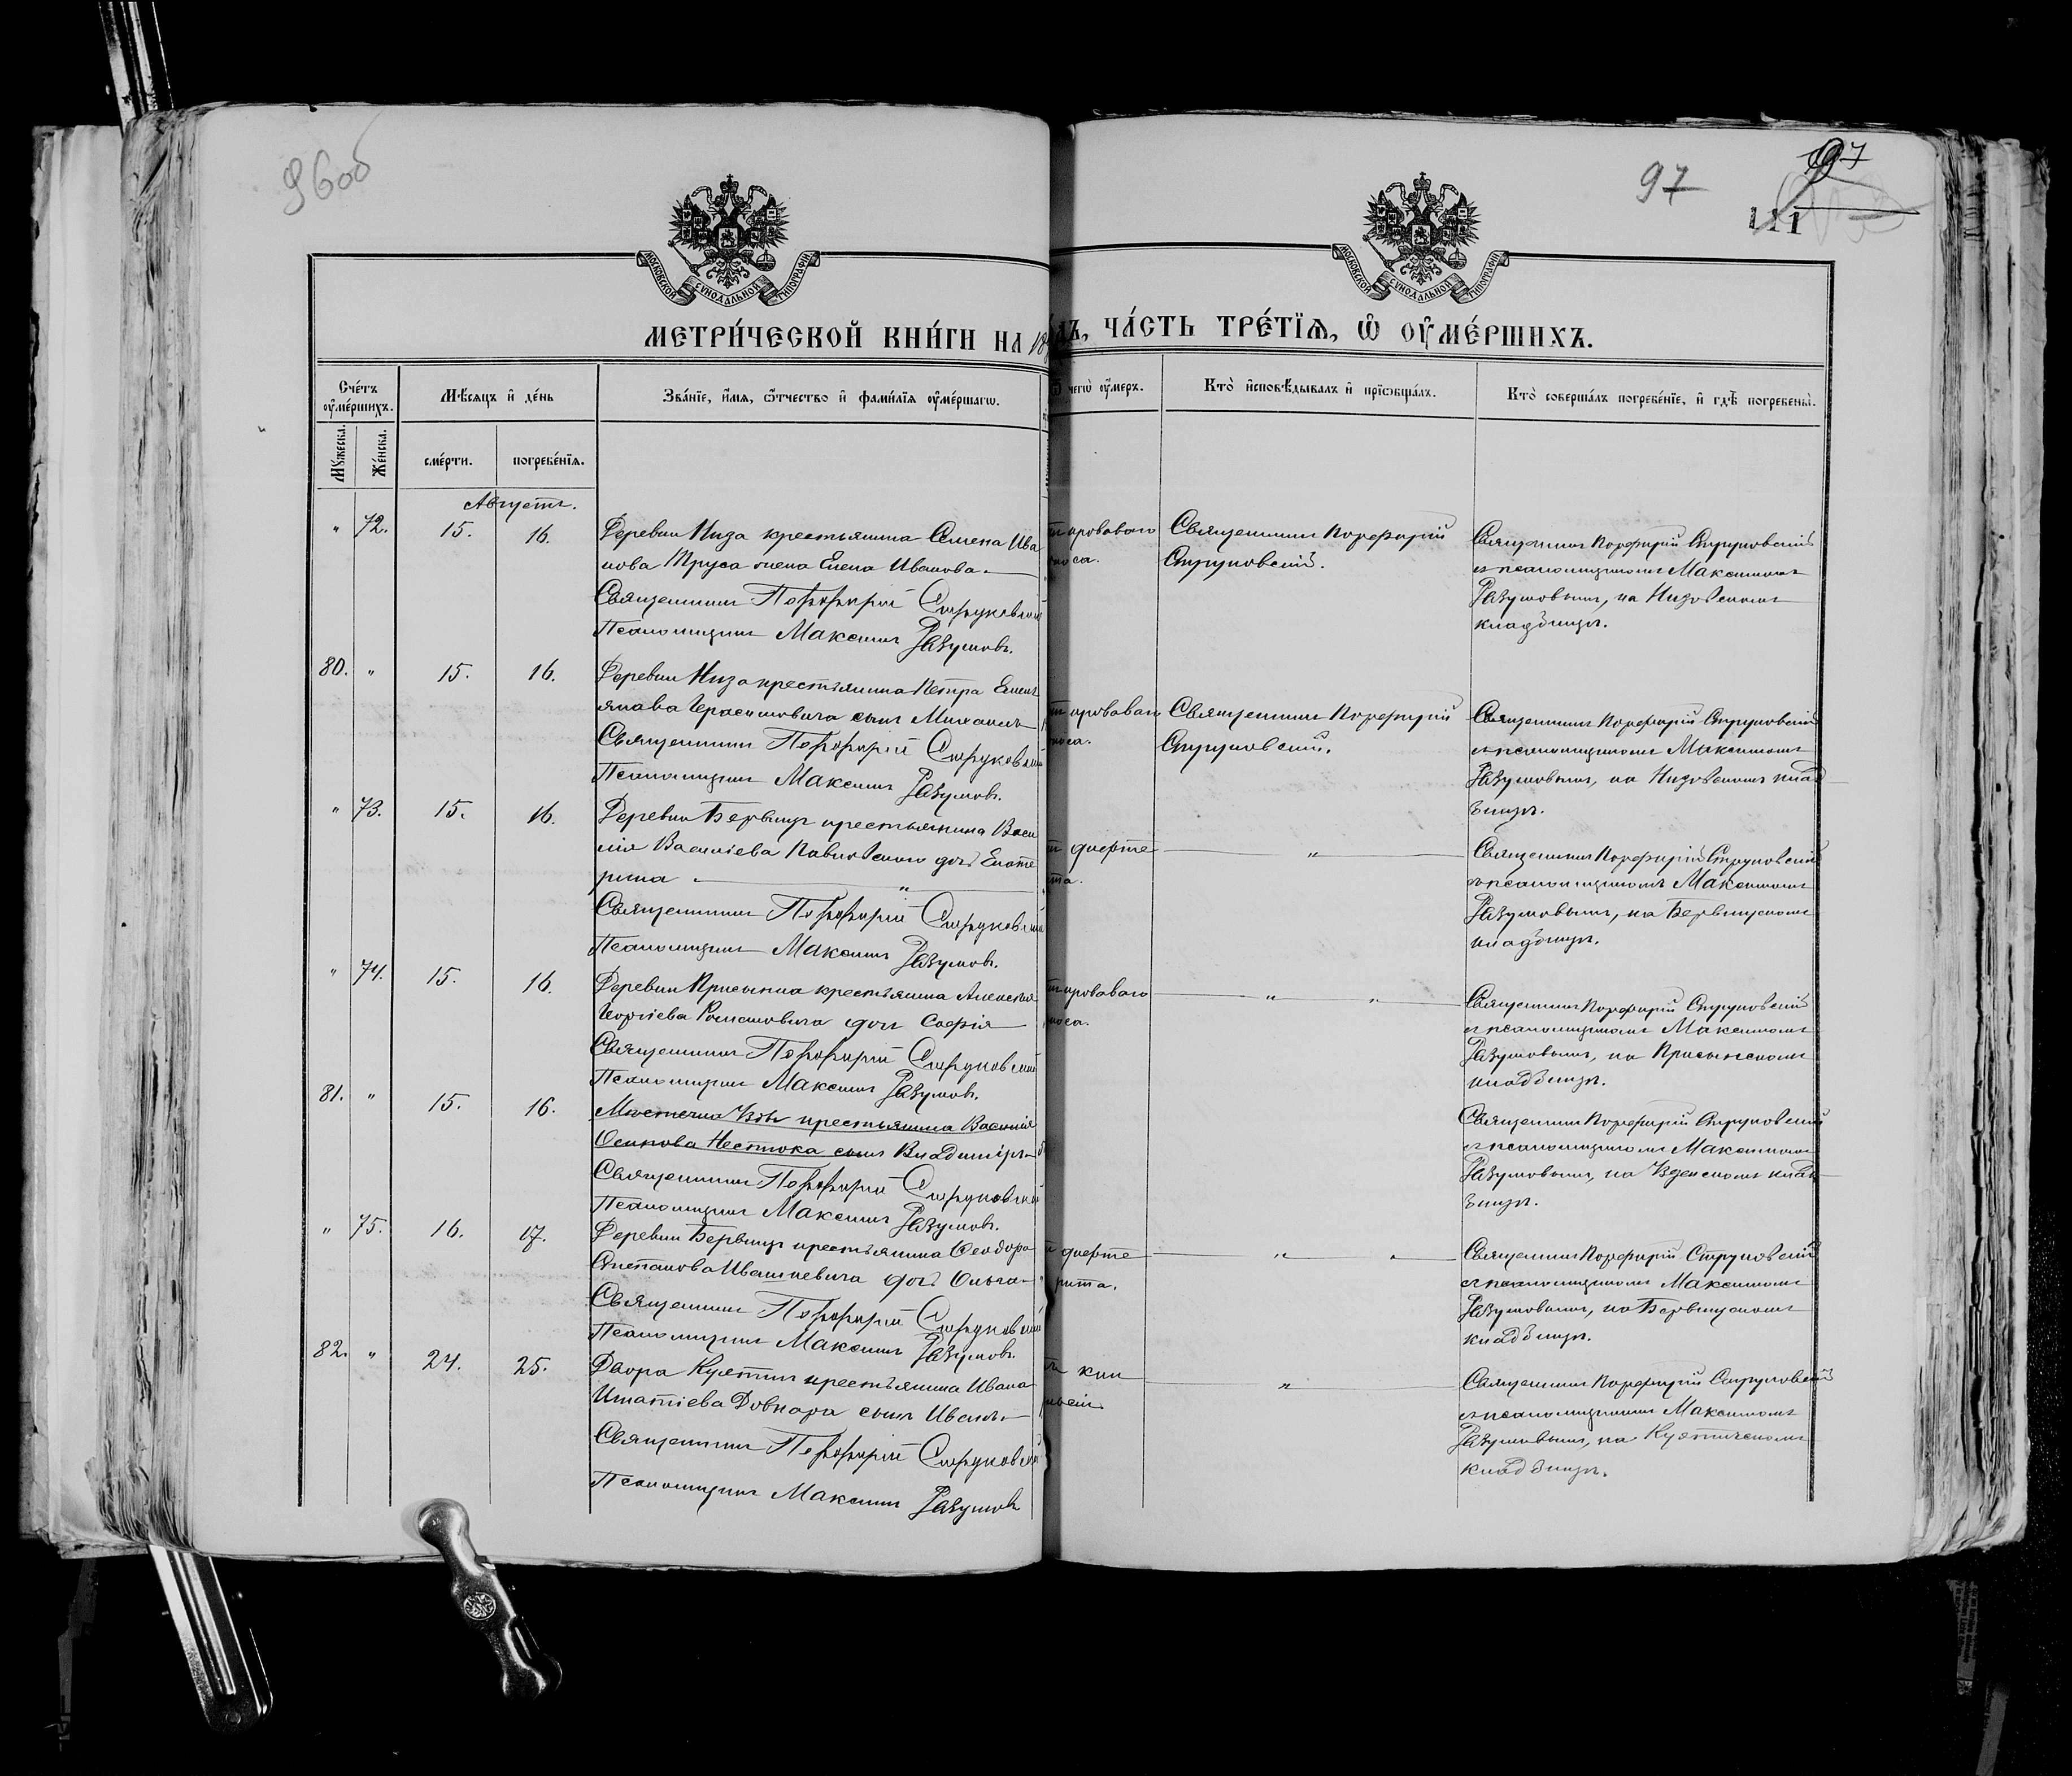 96 об
97
97
111
МОСКОВСКОЙ СѴНОДАЛЬНОЙ ТИПОГРАФІИ
МОСКОВСКОЙ СѴНОДАЛЬНОЙ ТИПОГРАФІИ
МЕТРИ́ЧЕСКОЙ КНИ́ГИ НА 18
ДЪ, ЧА́СТЬ ТРЕ́ТЇѦ, Ѡ҆ ОУ҆МЕ́РШИХЪ.
Сче́тъ оу҆ме́ршихъ.
Мѣ́сѧцъ и҆ де́нь
Зва́нїе, и҆́мѧ, ѻ҆́тчество и҆ фами́лїѧ оу҆ме́ршагѡ.
чегѡ̀ оу҆́меръ.
Кто̀ и҆сповѣ́дывалъ и҆ прїѡбща́лъ.
Кто̀ соверша́лъ погребе́нїе, и҆ гдѣ̀ погребены̀.
Мꙋ́жеска.
Же́нска.
сме́рти.
погребе́нїѧ.
Августъ.
" 72. 15. 16. Деревни Низа крестьянина Семена Ива
нова Труса жена Елена Иванова.
Священникъ Порфирій Струковскій
Псаломщикъ Максимъ Разумовъ.
кроваваго
носа.
Священникъ Порфирій
Струковскій.
Священникъ Порфирій Струковскій
съ псаломщикомъ Максимомъ
Разумовымъ, на Низовскомъ
кладбищѣ.
80. " 15. 16. Деревни Низа крестьянина Петра Емель
янова Герасимовича сынъ Михаилъ
Священникъ Порфирій Струковскій
Псаломщикъ Максимъ Разумовъ.
кроваваго
носа.
Священникъ Порфирій
Струковскій.
Священникъ Порфирій Струковскій
съ псаломщикомъ Максимомъ
Разумовымъ, на Низовскомъ клад
бищѣ.
" 73. 15. 16. Деревни крестьянина Васи
лія Васильева Павловскаго дочь Екате
рина "
Священникъ Порфирій Струковскій
Псаломщикъ Максимъ Разумовъ.
дифте
"
Священникъ Порфирій Струковскій
съ псаломщикомъ Максимомъ
Разумовымъ, на
кладбищѣ.
" 74. 15. 16. Деревни Присынка крестьянина Алексѣя
Георгіева Романовича дочь Софія
Священникъ Порфирій Струковскій
Псаломщикъ Максимъ Разумовъ.
кроваваго
носа.
" "
Священникъ Порфирій Струковскій
съ псаломщикомъ Максимомъ
Разумовымъ, на Присынскомъ
кладбищѣ.
81. " 15. 16. Мѣстечка Узды крестьянина Василія
Осипова Нестюка сынъ Владиміръ
Священникъ Порфирій Струковскій
Псаломщикъ Максимъ Разумовъ.
Священникъ Порфирій Струковскій
съ псаломщикомъ Максимомъ
Разумовымъ, на Узденскомъ клад
бищѣ.
" 75. 16. 17. Деревни крестьянина Ѳеодора
Степанова Ивашкевича дочь Ольга
Священникъ Порфирій Струковскій
Псаломщикъ Максимъ Разумовъ.
дифте
рита.
" "
Священникъ Порфирій Струковскій
съ псаломщикомъ Максимомъ
Разумовымъ, на
кладбищѣ.
82. " 24. 25. Двора Куптичи крестьянина Ивана
Игнатіева Довнара сынъ Иванъ
Священникъ Порфирій Струковскій
Псаломщикъ Максимъ Разумовъ
"
Священникъ Порфирій Струковскій
съ псаломщикомъ Максимомъ
Разумовымъ, на
кладбищѣ.